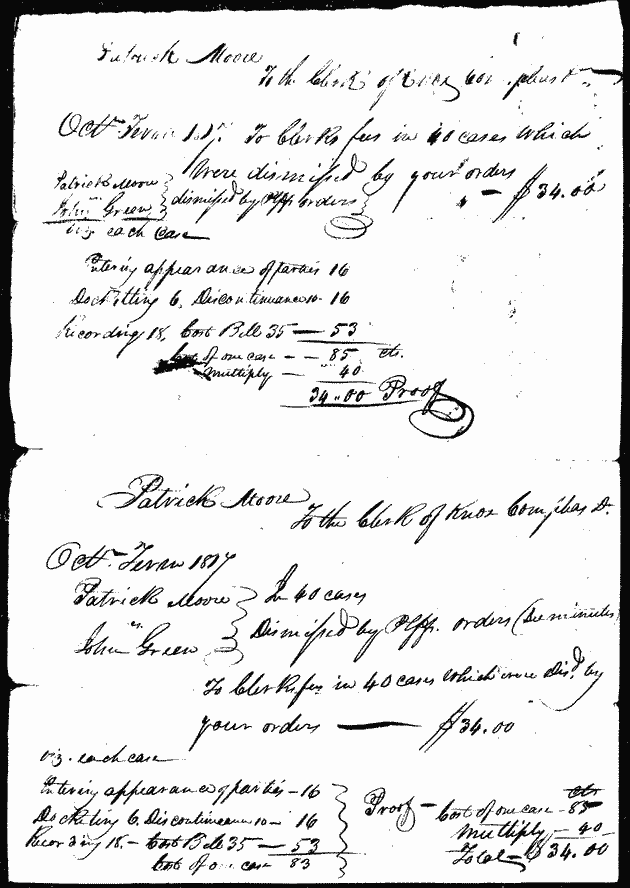 Patrick Moore
To the Clerk of Knox Com. pleas Dr.
Octr. Term 1817. To Clerks fees in 40 cases which
Were dismissed by your orders — $34.00
Patrick Moore
vs.
John Green } dismissed by Plffs orders
viz each case
Entering appearance of parties 16
Docketting 6, Discontinuance 10 - 16
Recording 18, Cost Bill 35 — 53
Cost of one case — — 85 cts.
Multiply — 40
34.00 Proof
Patrick Moore
To the Clerk of Knox Com pleas Dr.
Octr. Term 1817
Patrick Moore } In 40 cases
vs.
John Green } Dismissed by Plffs. orders (See minutes
To Clerks fees in 40 cases which were Disd. by
your orders — $34.00
viz. each case
Entering appearance of parties - 16
Docketing 6, Discontinuance 10 - 16
Recording 18. - Cost Bill 35 — 53
Cost of one case 83
Proof - cts
Cost of one case - 85
Multiply - 40
Total - $34.00